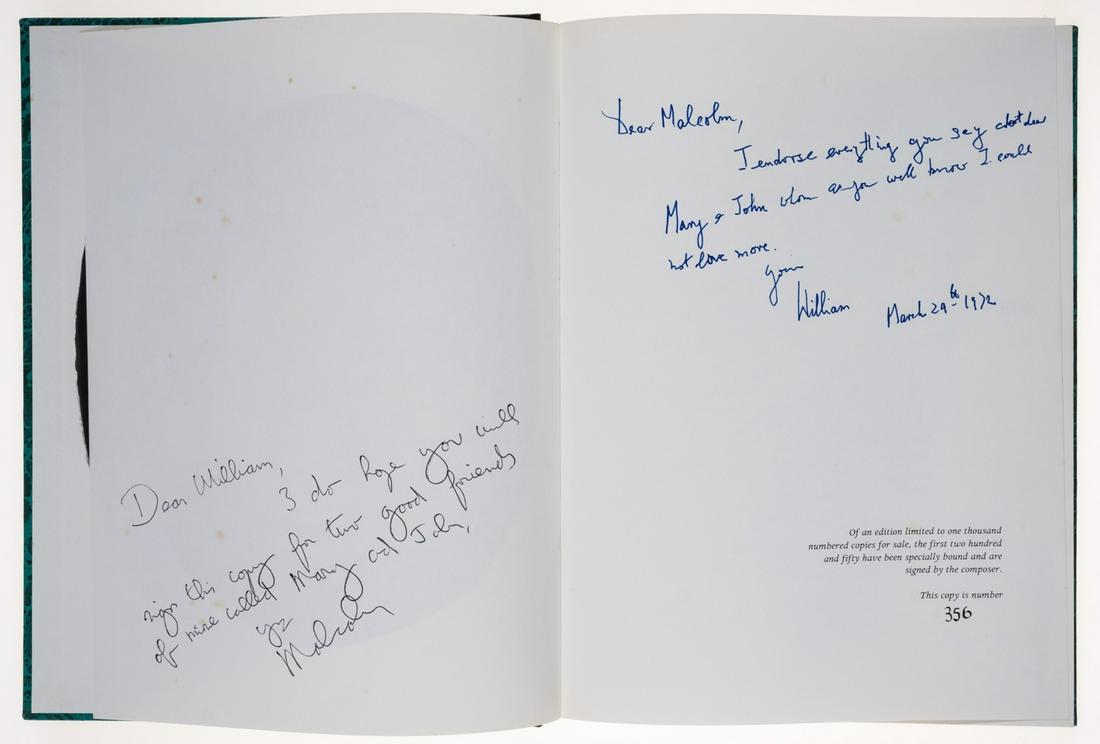 Dear William,
I do hope you will
sign this copy for two good friends
of mine called Mary and John,
yrs
Malcolm
Dear Malcolm,
I endorse everything you say about dear
Mary & John whom as you well know I could
not love more.
Yours
William March 29th 1972
Of an edition limited to one thousand
numbered copies for sale, the first two hundred
and fifty have been specially bound and are
signed by the composer.
This copy is number
356